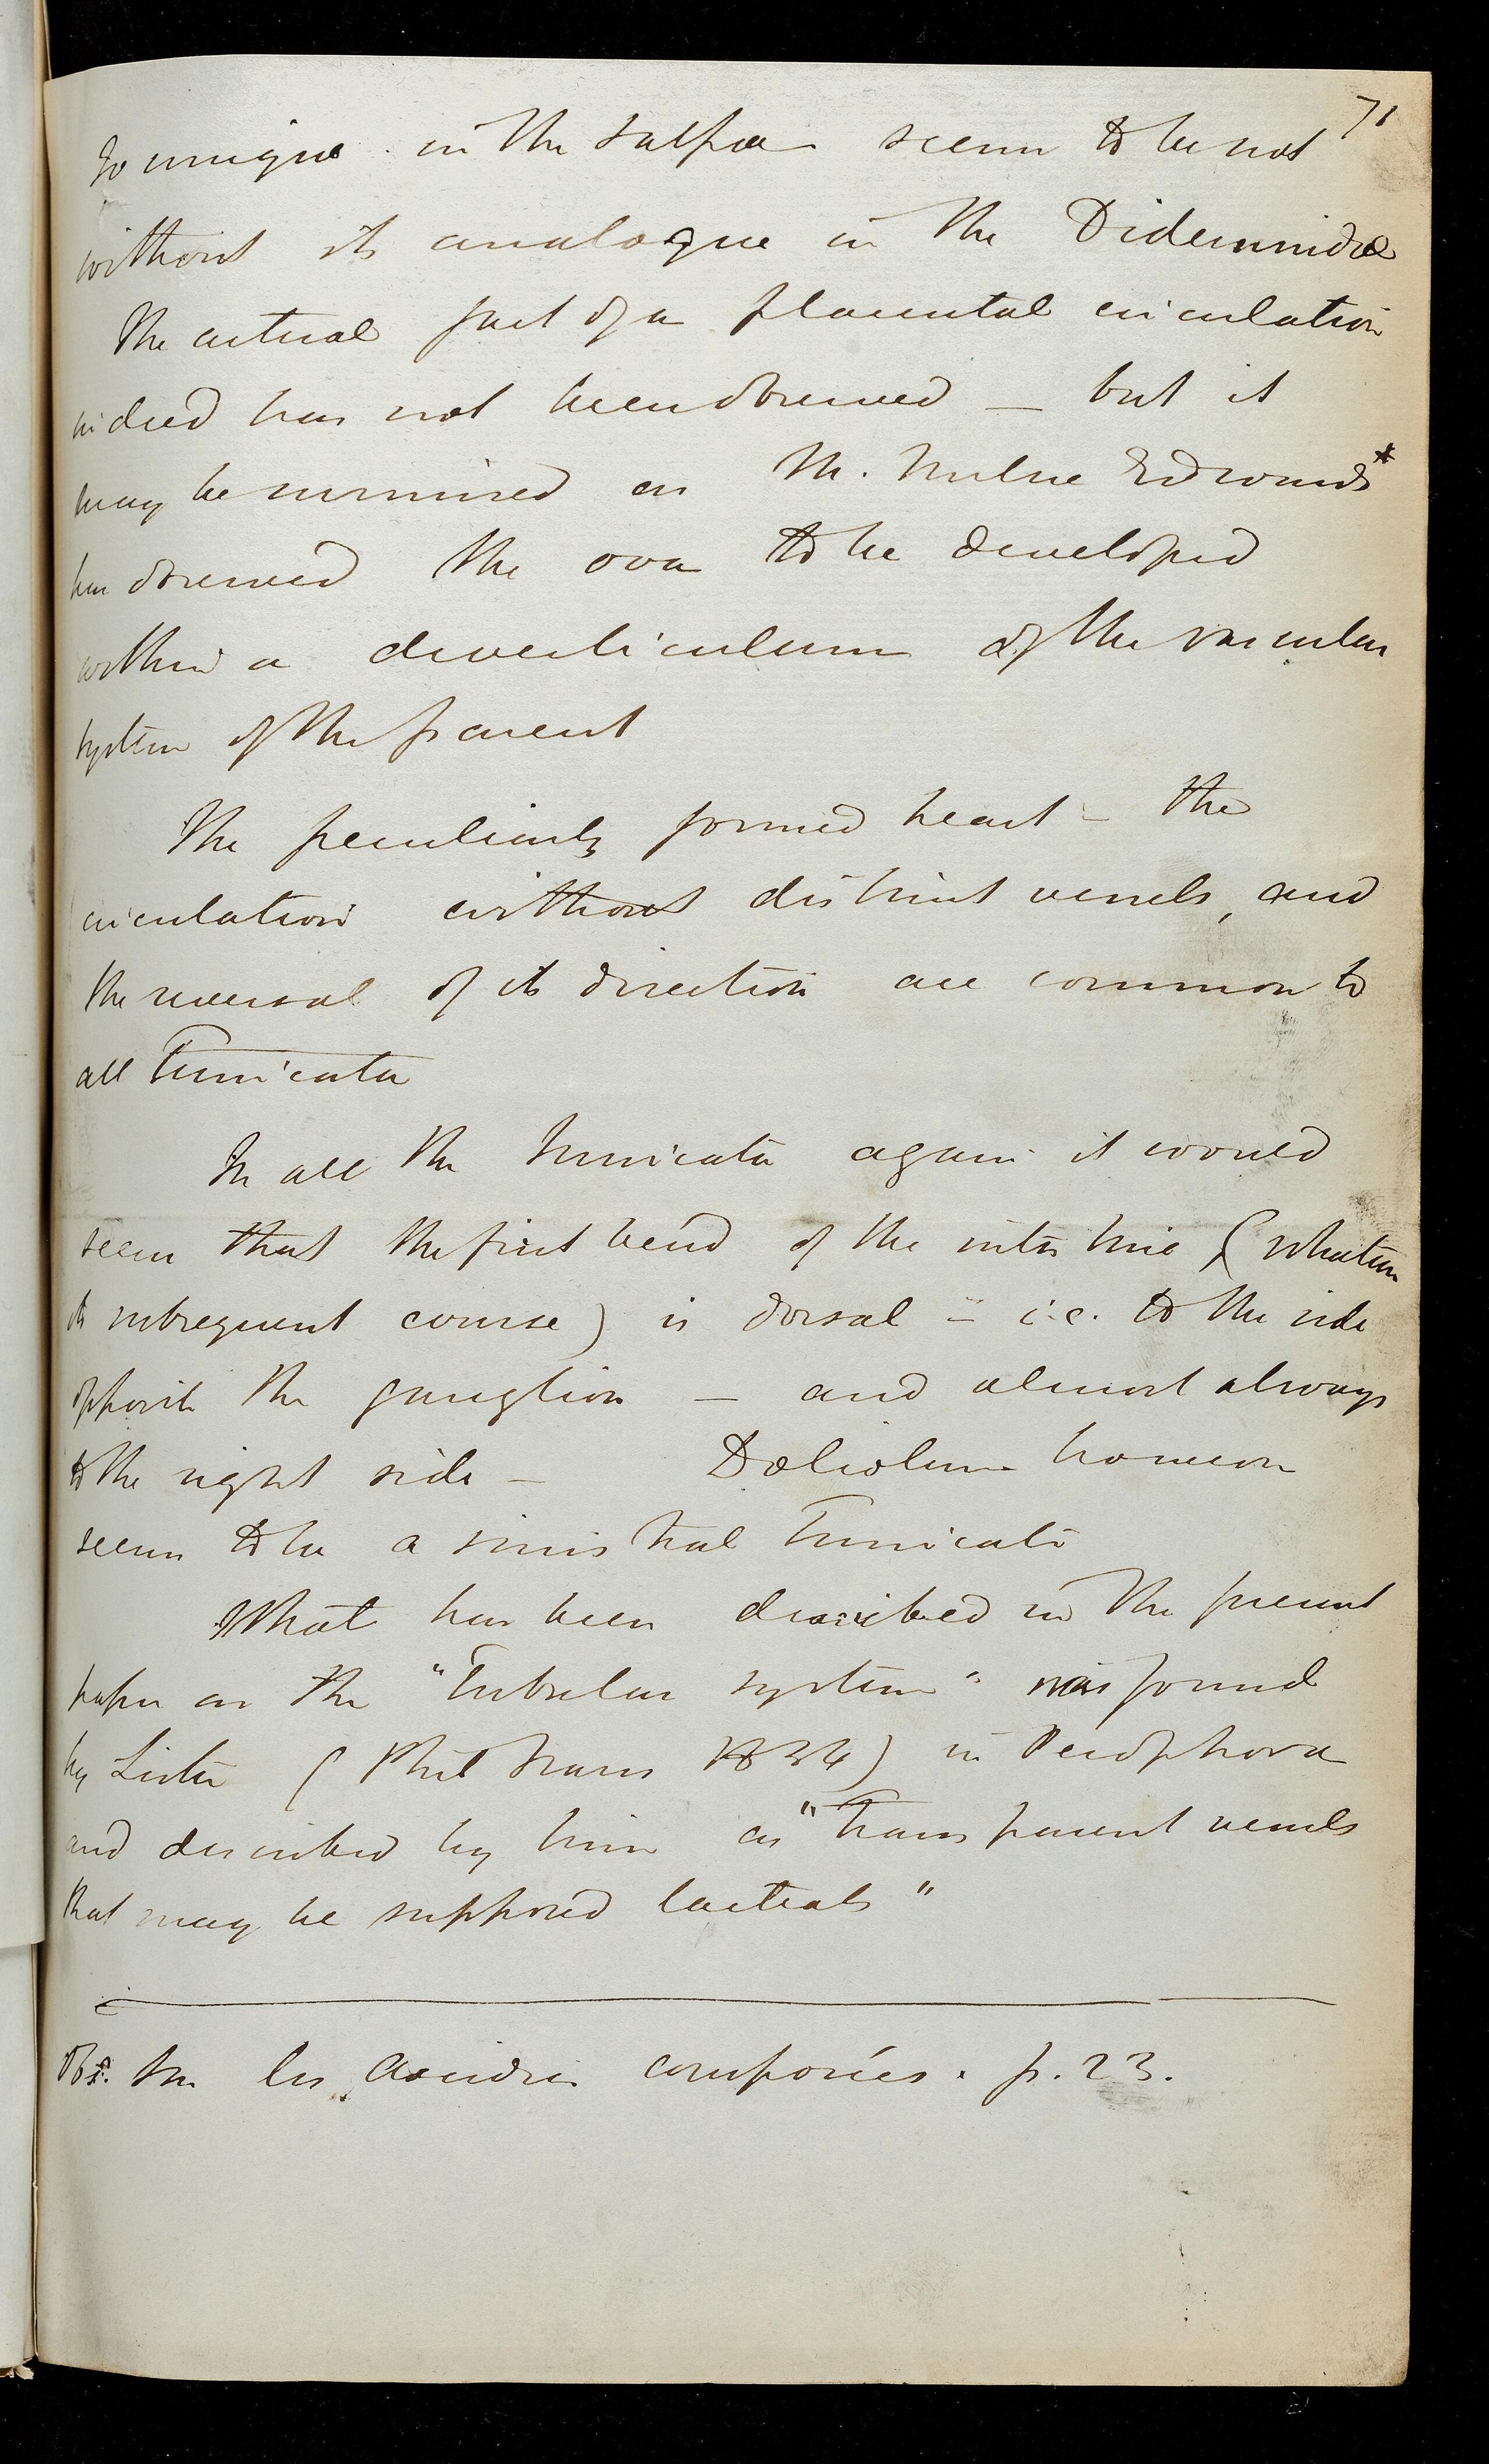 71
so unique in the Salpæ seems to be not
without its analogue in the Didemnidæ
The actual fact of a placental circulation
indeed has not been observed — but it
may be surmised as M. Milne Edwards*
has observed the ova to be developed
within a diverticulum of the vascular
system of the parent
The peculiarly formed heart – the
circulation without distinct vessels, and
the reversal of its direction are common to
all Tunicata
In all the Tunicata again it would
seem that the first bend of the intestine (whatever
its subsequent course) is dorsal – i.e. to the side
opposite the ganglion — and almost always
to the right side – Doliolum however
seems to be a sinistral Tunicate
What has been described in the present
paper as the "Tubular system" was found
by Lister (Phil Trans 1834) in Perophora
and described by him as "Transparent vessels
that may be supposed lacteals"
Obs. sur les Ascidies composées. p. 23.